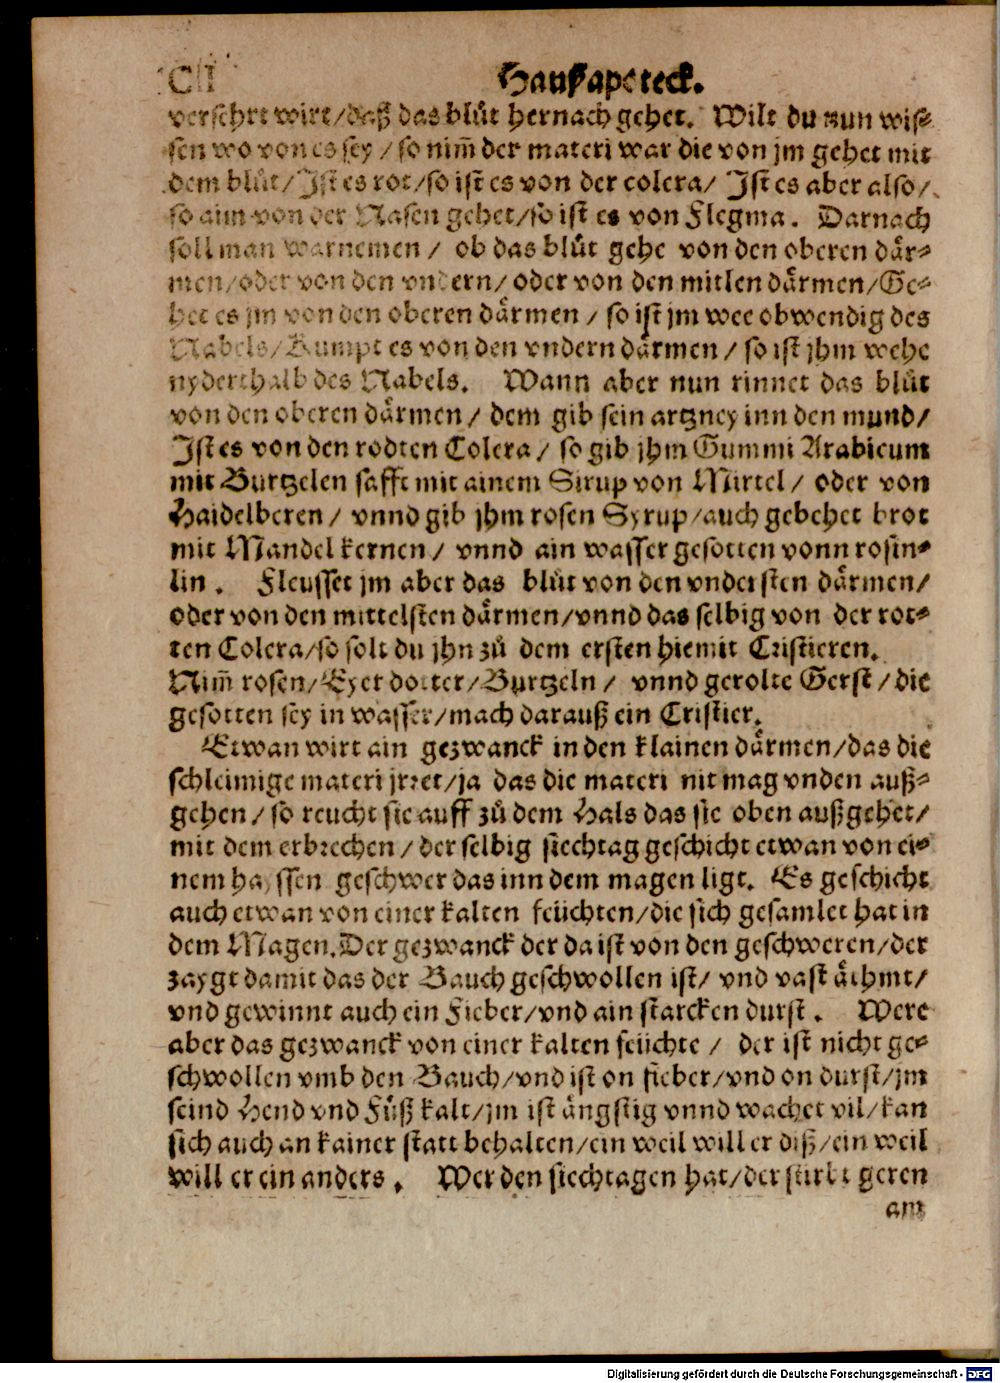 CII Haußapoteck.
versehrt wirt/daß das blůt hernach gehet. Wilt du nun wis⸗
sen wo von es sey/so nim̃ der materi war die von jm gehet mit
dem blůt/Ist es rot/so ist es von der colera/ Ist es aber also/
so aim von der Nasen gehet/so ist es von Flegma. Darnach
soll man warnemen/ ob das blůt gehe von den oberen där⸗
men/oder von den vndern/oder von den mitlen därmen/Ge⸗
het es jm von den oberen därmen/so ist jm wee obwendig des
Nabels/Kumpt es von den vndern därmen/so ist jhm wehe
nyderthalb des Nabels. Wann aber nun rinnet das blůt
von den oberen därmen/ dem gib sein artzney inn den mund/
Ist es von den rodten Colera/ so gib jhm Gummi Arabicum
mit Burtzelen safft mit ainem Sirup von Mirtel/ oder von
Haidelberen/ vnnd gib jhm rosen Syrup/auch gebehet brot
mit Mandel kernen/ vnnd ain wasser gesotten vonn rosin⸗
lin. Fleusset jm aber das blůt von den vndersten därmen/
oder von den mittelsten därmen/vnnd das selbig von der rot⸗
ten Colera/so solt du jhn zů dem ersten hiemit Cristieren.
Nim̃ rosen/Eyer dotter/Burtzeln/ vnnd gerolte Gerst/die
gesotten sey in wasser/mach darauß ein Cristier.
Etwan wirt ain gezwanck in den klainen därmen/das die
schleimige materi jrret/ja das die materi nit mag vnden auß⸗
gehen/so reucht sie auff zů dem Hals das sie oben außgehet/
mit dem erbrechen/der selbig siechtag geschicht etwan von ei⸗
nem hayssen geschwer das inn dem magen ligt. Es geschicht
auch etwan von einer kalten feüchten/die sich gesamlet hat in
dem Magen. Der gezwanck der da ist von den geschweren/der
zaygt damit das der Bauch geschwollen ist/ vnd vast äthmt/
vnd gewinnt auch ein Fieber/vnd ain starcken durst. Were
aber das gezwanck von einer kalten feüchte/ der ist nicht ge⸗
schwollen vmb den Bauch/vnd ist on fieber/vnd on durst/jm
seind Hend vnd Fůß kalt/jm ist ängstig vnnd wachet vil/kan
sich auch an kainer statt behalten/ein weil will er diß/ein weil
will er ein anders. Wer den siechtagen hat/der stirbt geren
am
Digitalisierung gefördert durch die Deutsche Forschungsgemeinschaft - DFG